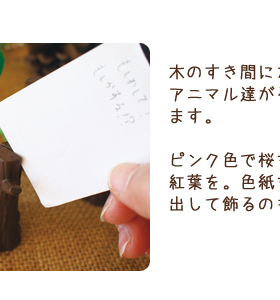 木のすき間に
アニマル達が
ます。
ピンク色で桜
紅葉を。色紙
出して飾るの
もしかして!